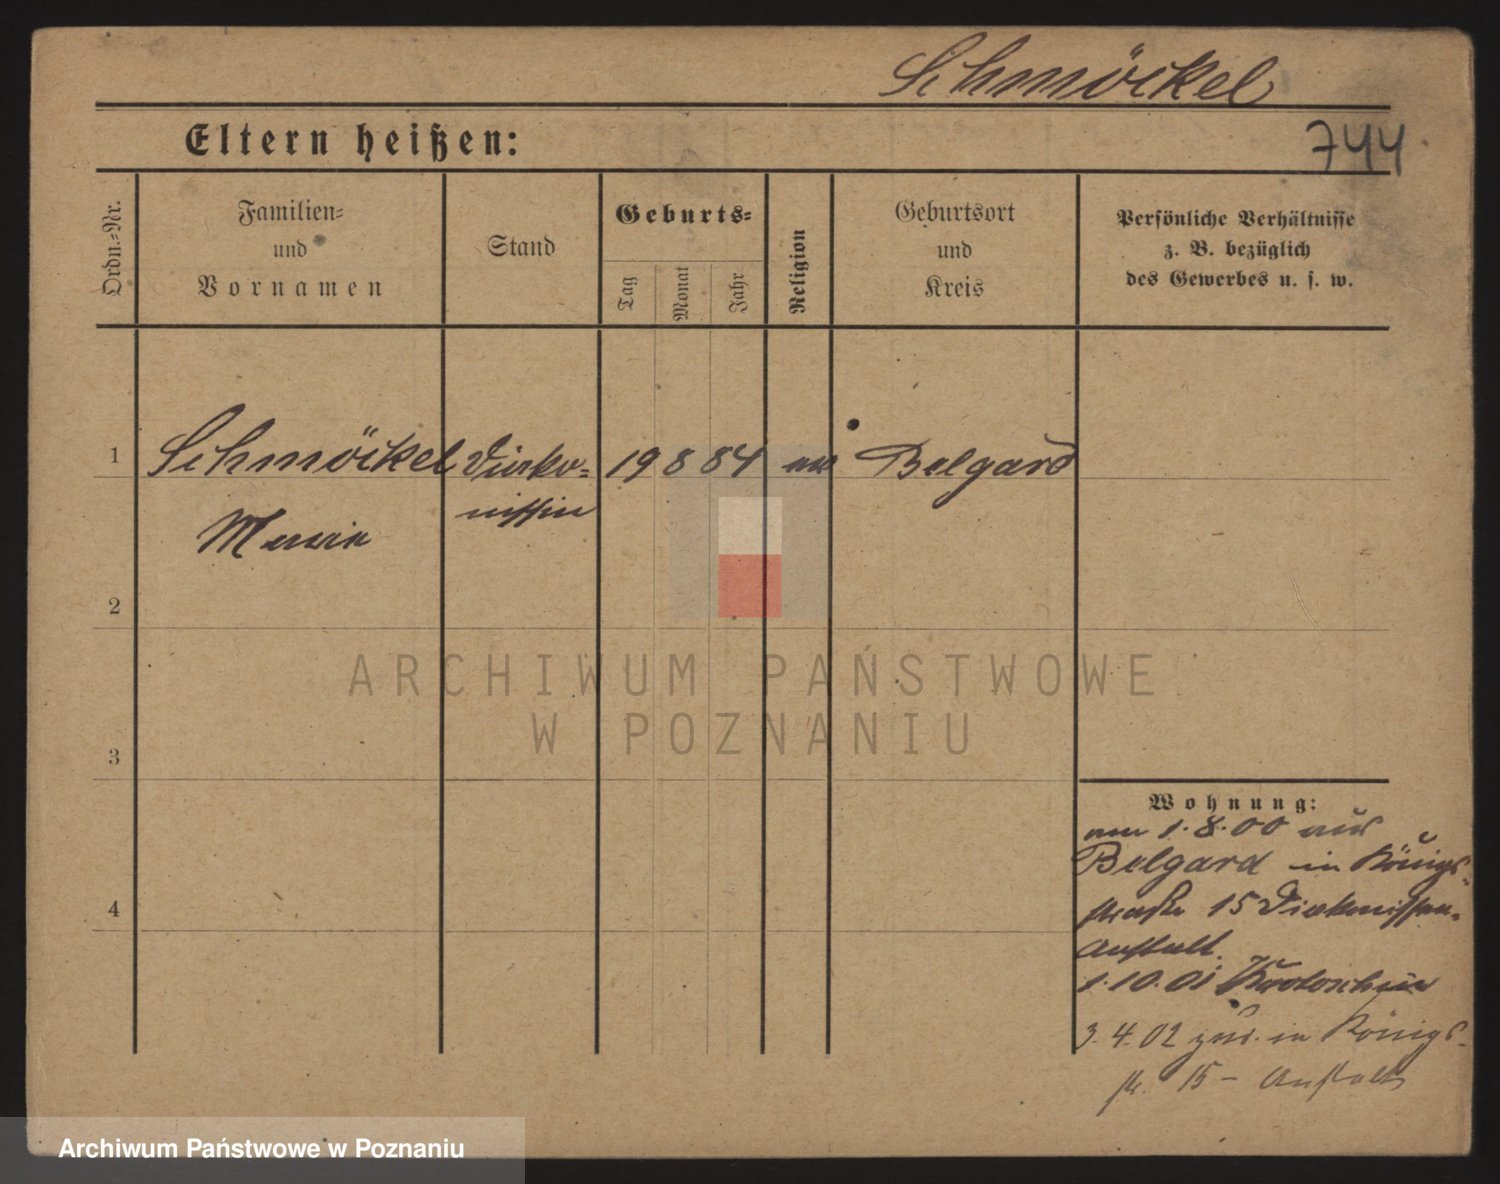 Schmöckel
Eltern heißen:
744
Ordn.-Nr.
Familien-
und
Vornamen
Stand
Geburts-
Tag
Monat
Jahr
Religion
Geburtsort
und
Kreis
Persönliche Verhältnisse
z. B. bezüglich
des Gewerbes u. s. w.
1
Schmöckel
Marie
Diako-
nissin
19 8 84
ev
Belgard
2
3
4
Wohnung:
am 1.8.00 aus
Belgard in Königs-
straße 15 Diakonissen-
Anstalt.
1.10.01 Krotoschin
3.4.02 zur. in Königs-
str. 15 - Anstalt
ARCHIWUM PAŃSTWOWE
W POZNANIU
Archiwum Państwowe w Poznaniu